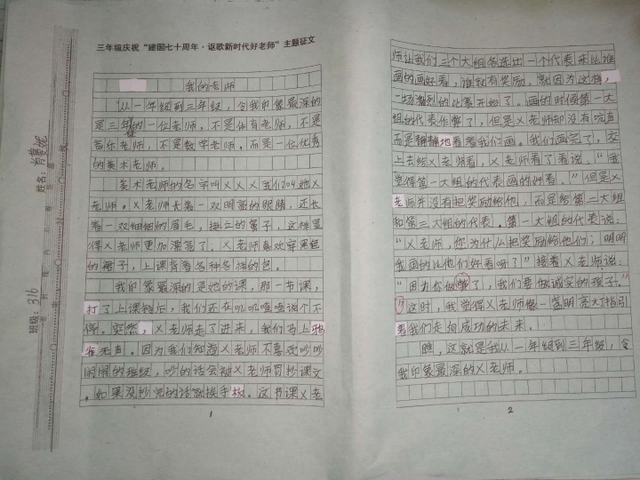 三年级庆祝“建国七十周年·讴歌新时代好老师”主题征文
我的老师
从一年级到三年级，令我印象最深的
是三年级的一位老师，不是体育老师，不是
音乐老师，不是数学老师，而是一位优秀
的美术老师。
美术老师的名字叫XXX我们叫她X
老师。X老师长着一双明亮的眼睛，还长
着一双细细的眉毛，挺立的鼻子，这样显
得X老师更加漂亮了。X老师喜欢穿黑色
的裙子，上课背着各种各样的包。
我印象最深的是她的课，那一节课，
打了上课铃后，我们还在叽叽喳喳说个不
停。突然，X老师走了进来，我们马上鸦
雀无声。因为我们知道X老师不喜欢吵吵
闹闹的班级，吵的话会被X老师罚抄课文
，如果没抄完的话就挨手板。这节课X老
1
师让我们三个大组各选出一个代表来比谁
画的画好看，谁就有奖励。就因为这样，
一场激烈的比赛开始了，画的时候第一大
组的代表作弊了，但是X老师却没有说
而是静静地看着我们画。我们画完了，交
上去给X老师看，X老师看了看说：“我
觉得第一大组的代表画的好看。”但是X
老师并没有把奖励给他，而是给第二大组
和第三大组的代表。第一大组的代表说：
“X老师，您为什么把奖励给他们；明明
我画的比他们好看呀？”接着X老师说：
“因为你做弊了，我们要做诚实的孩子。
”这时，我觉得X老师像一盏明亮大灯指引
着我们走向成功的未来。
瞧，这就是我从一年级到三年级，令
我印象最深的X老师。
2
班级：316
姓名：